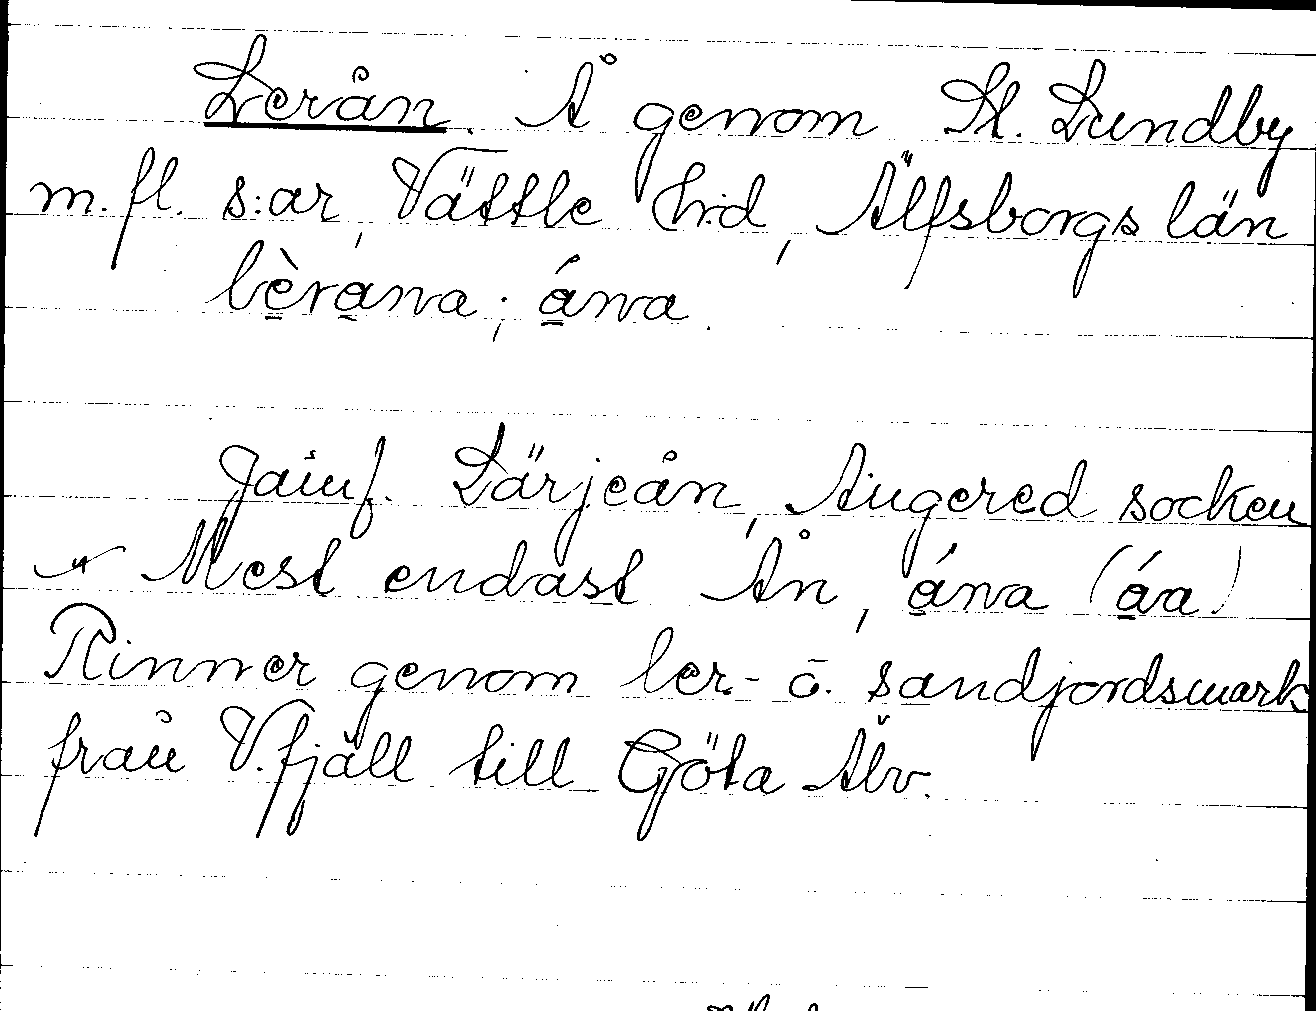 Lerån. Å genom St. Lundby
m.fl. s:ar, Vättle h:d, Älfsborgs län
lèrana; ána.
Jämf. Lärjeån, Angered socken
Mest endast Ån, ána (áa)
Rinner genom ler- o. sandjordsmark
från V.fjäll till Göta Älv.